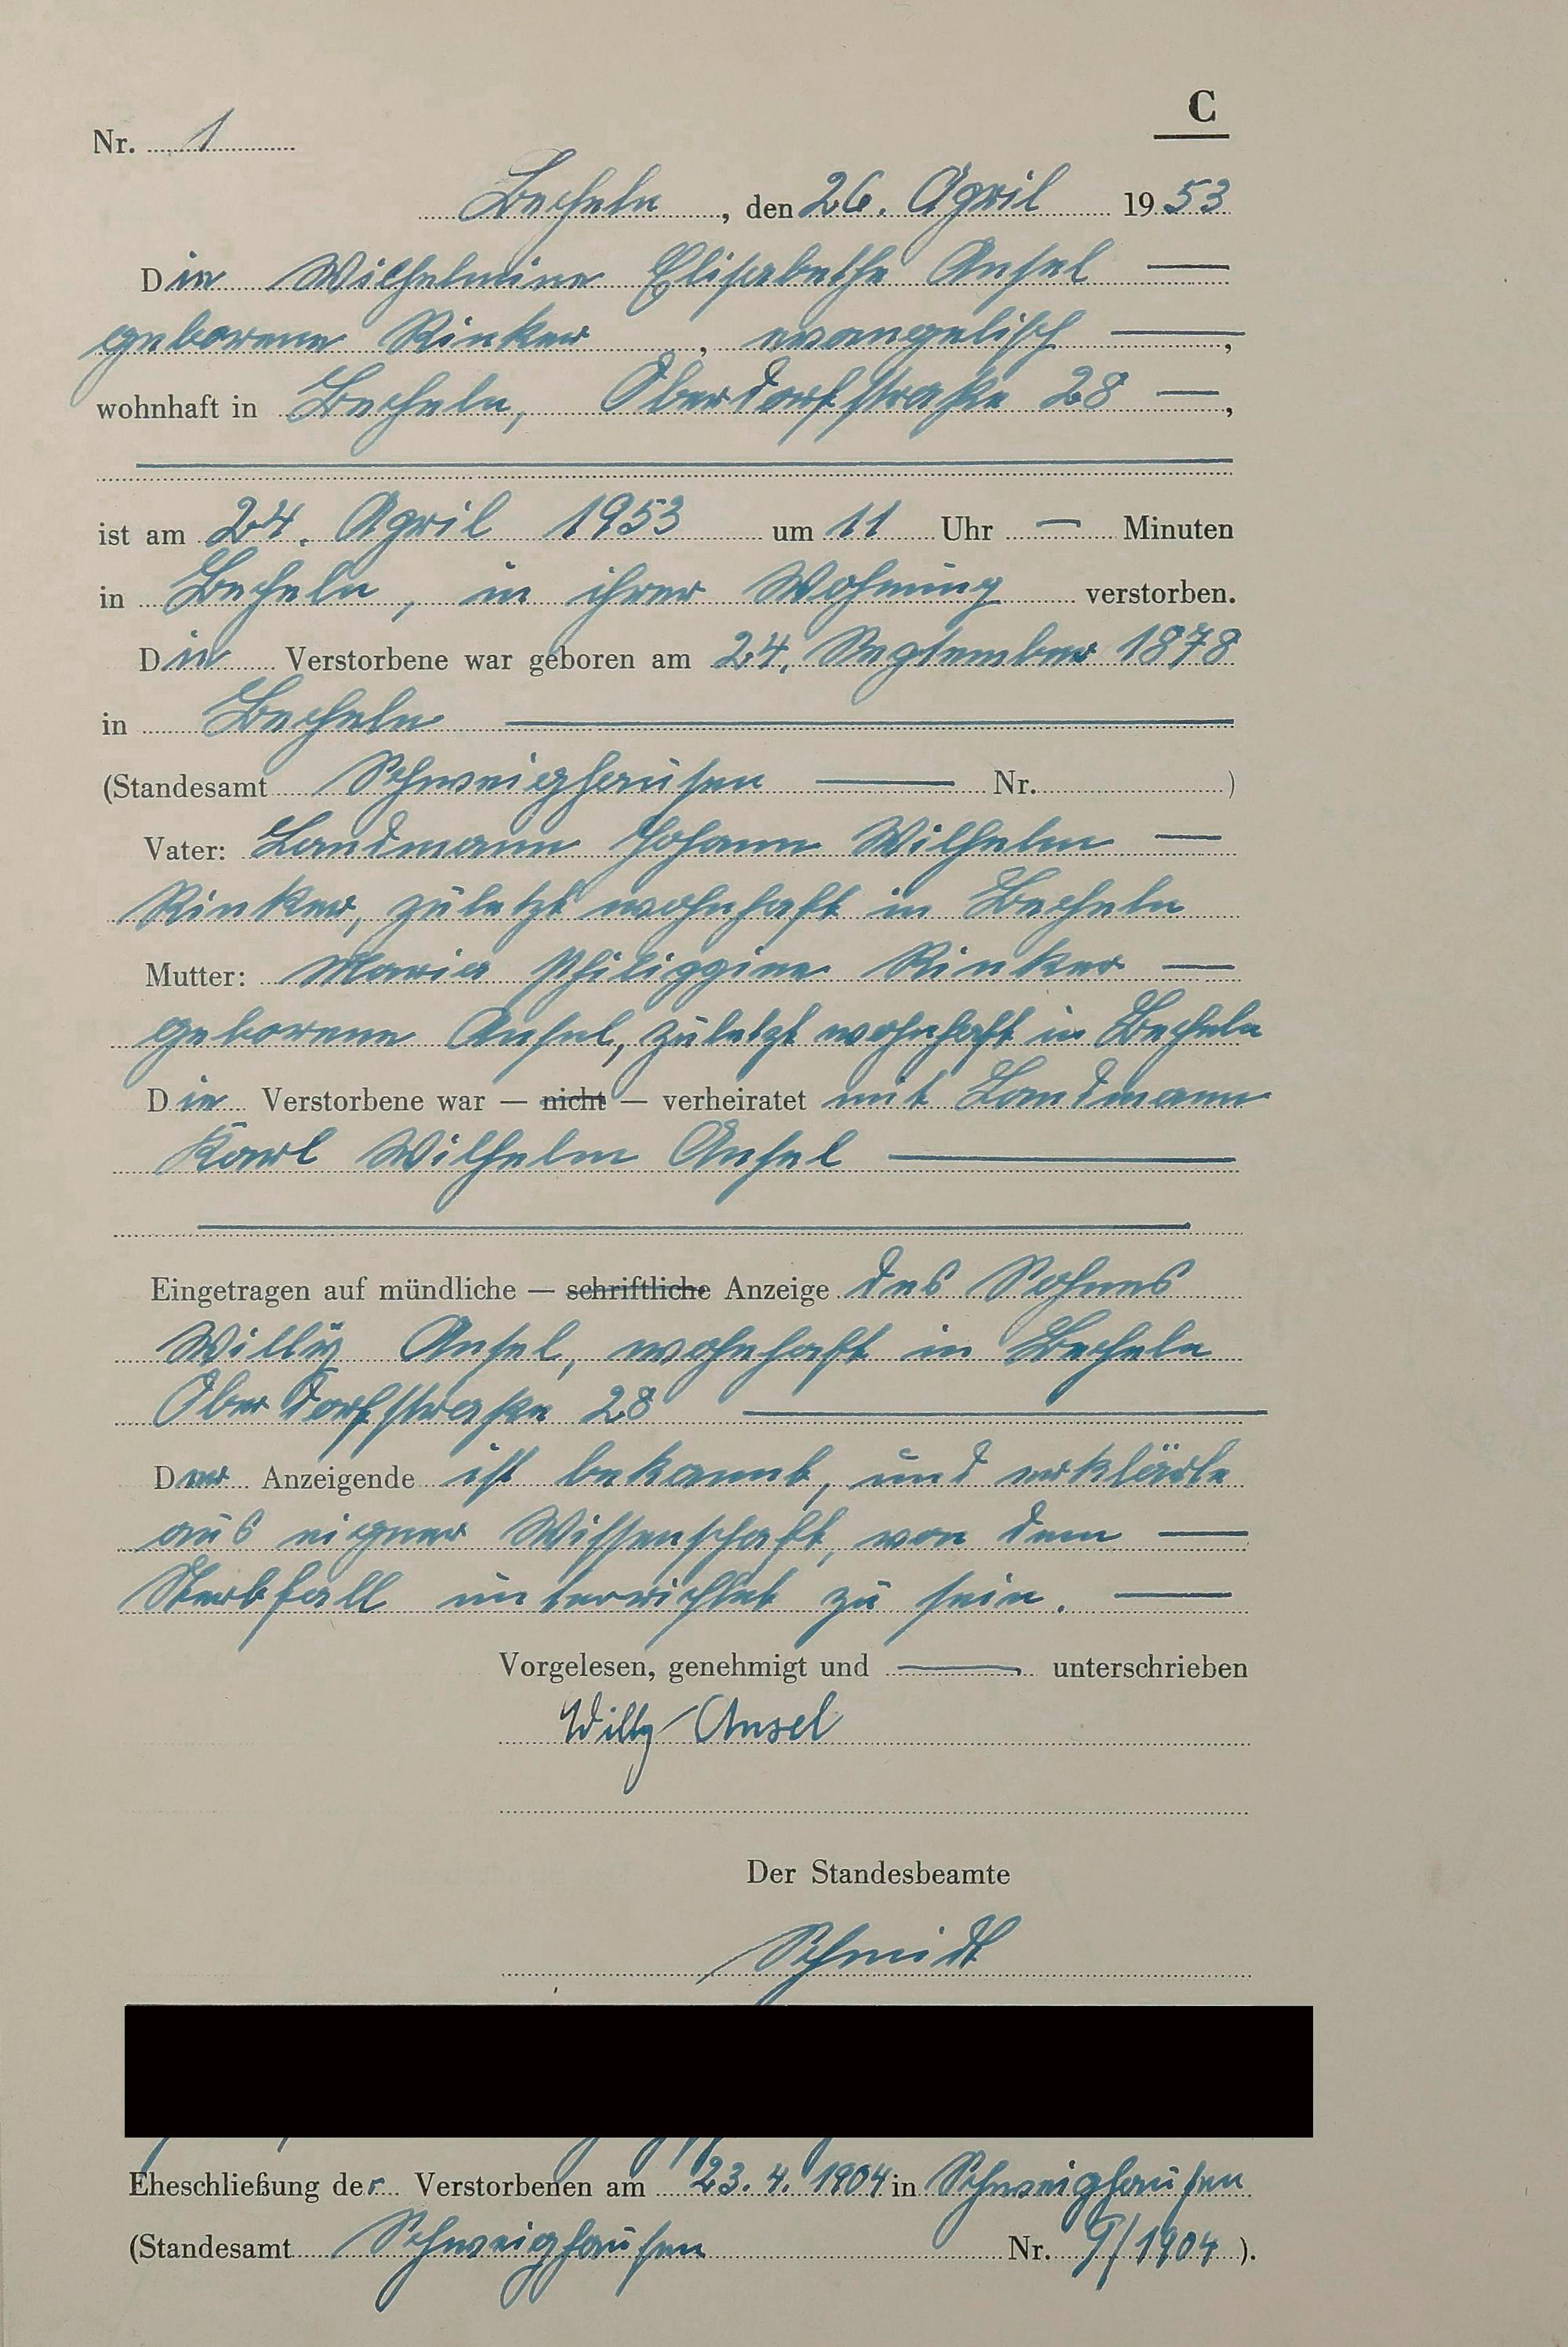 C
Nr. 1
Becheln, den 26. April 1953
Die Wilhelmine Elisabethe Ansel —
geborene Rinker, evangelisch —,
wohnhaft in Becheln, Oberdorfstraße 28 —,
ist am 24. April 1953 um 11 Uhr — Minuten
in Becheln, in ihrer Wohnung verstorben.
Die Verstorbene war geboren am 24. September 1878
in Becheln —
(Standesamt Schweighausen — Nr. )
Vater: Landmann Johann Wilhelm —
Rinker, zuletzt wohnhaft in Becheln
Mutter: Maria Philippine Rinker —
geborene Ansel, zuletzt wohnhaft in Becheln
Die Verstorbene war — nicht — verheiratet mit Landmann
Karl Wilhelm Ansel —
Eingetragen auf mündliche — schriftliche Anzeige des Sohnes
Willy Ansel, wohnhaft in Becheln
Oberdorfstraße 28 —
Der Anzeigende ist bekannt, und erklärte
aus eigner Wissenschaft, von dem —
Sterbfall unterrichtet zu sein. —
Vorgelesen, genehmigt und — unterschrieben
Willy Ansel
Der Standesbeamte
Schmidt
Eheschließung der Verstorbenen am 23. 4. 1904 in Schweighausen
(Standesamt Schweighausen Nr. 9/1904 ).